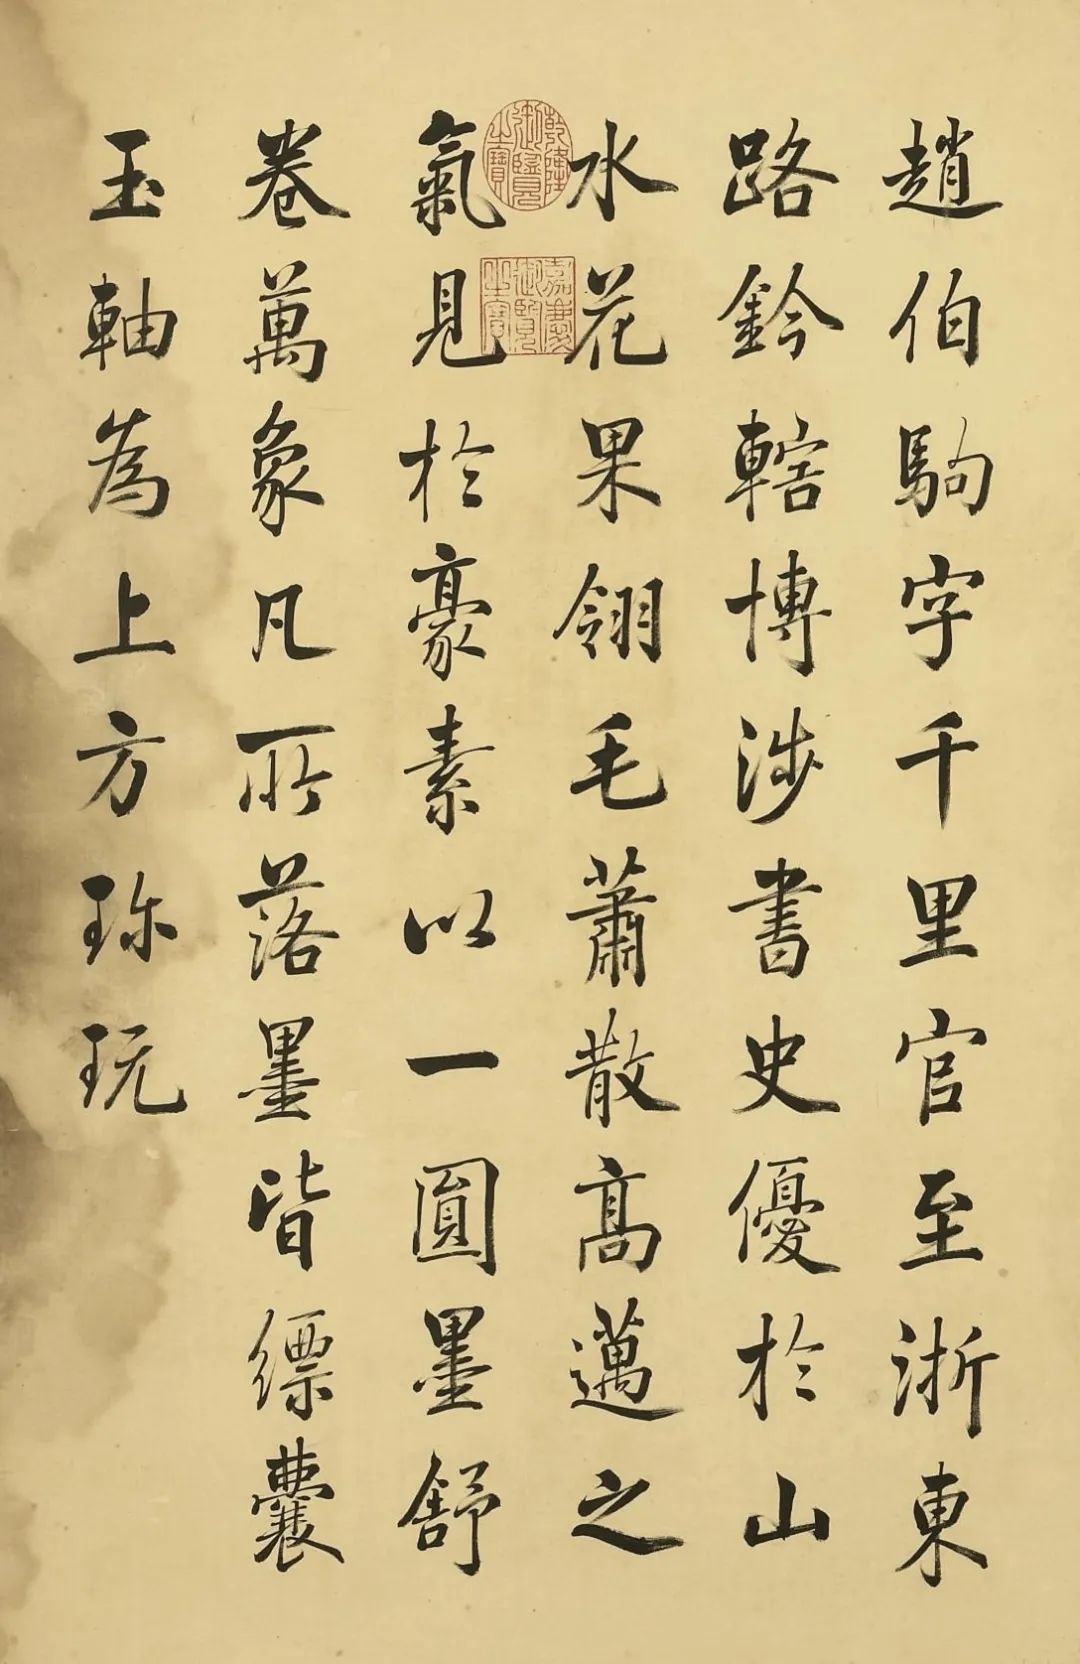 趙伯駒字千里官至浙東
路鈐轄博涉書史優於山
水花果翎毛蕭散高邁之
氣見於豪素以一圓墨舒
卷萬象凡所落墨皆縹囊
玉軸為上方珎玩
乾隆御覽之寶
嘉慶御覽之寶